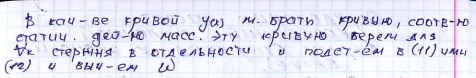 В кач-ве кривой у(х) м. брать кривую, соотв-ю
статич. дей-ю масс. Эту кривую берем для
стержня в отдельности и подст-ем в (11) или
(12) и выч-ем ω